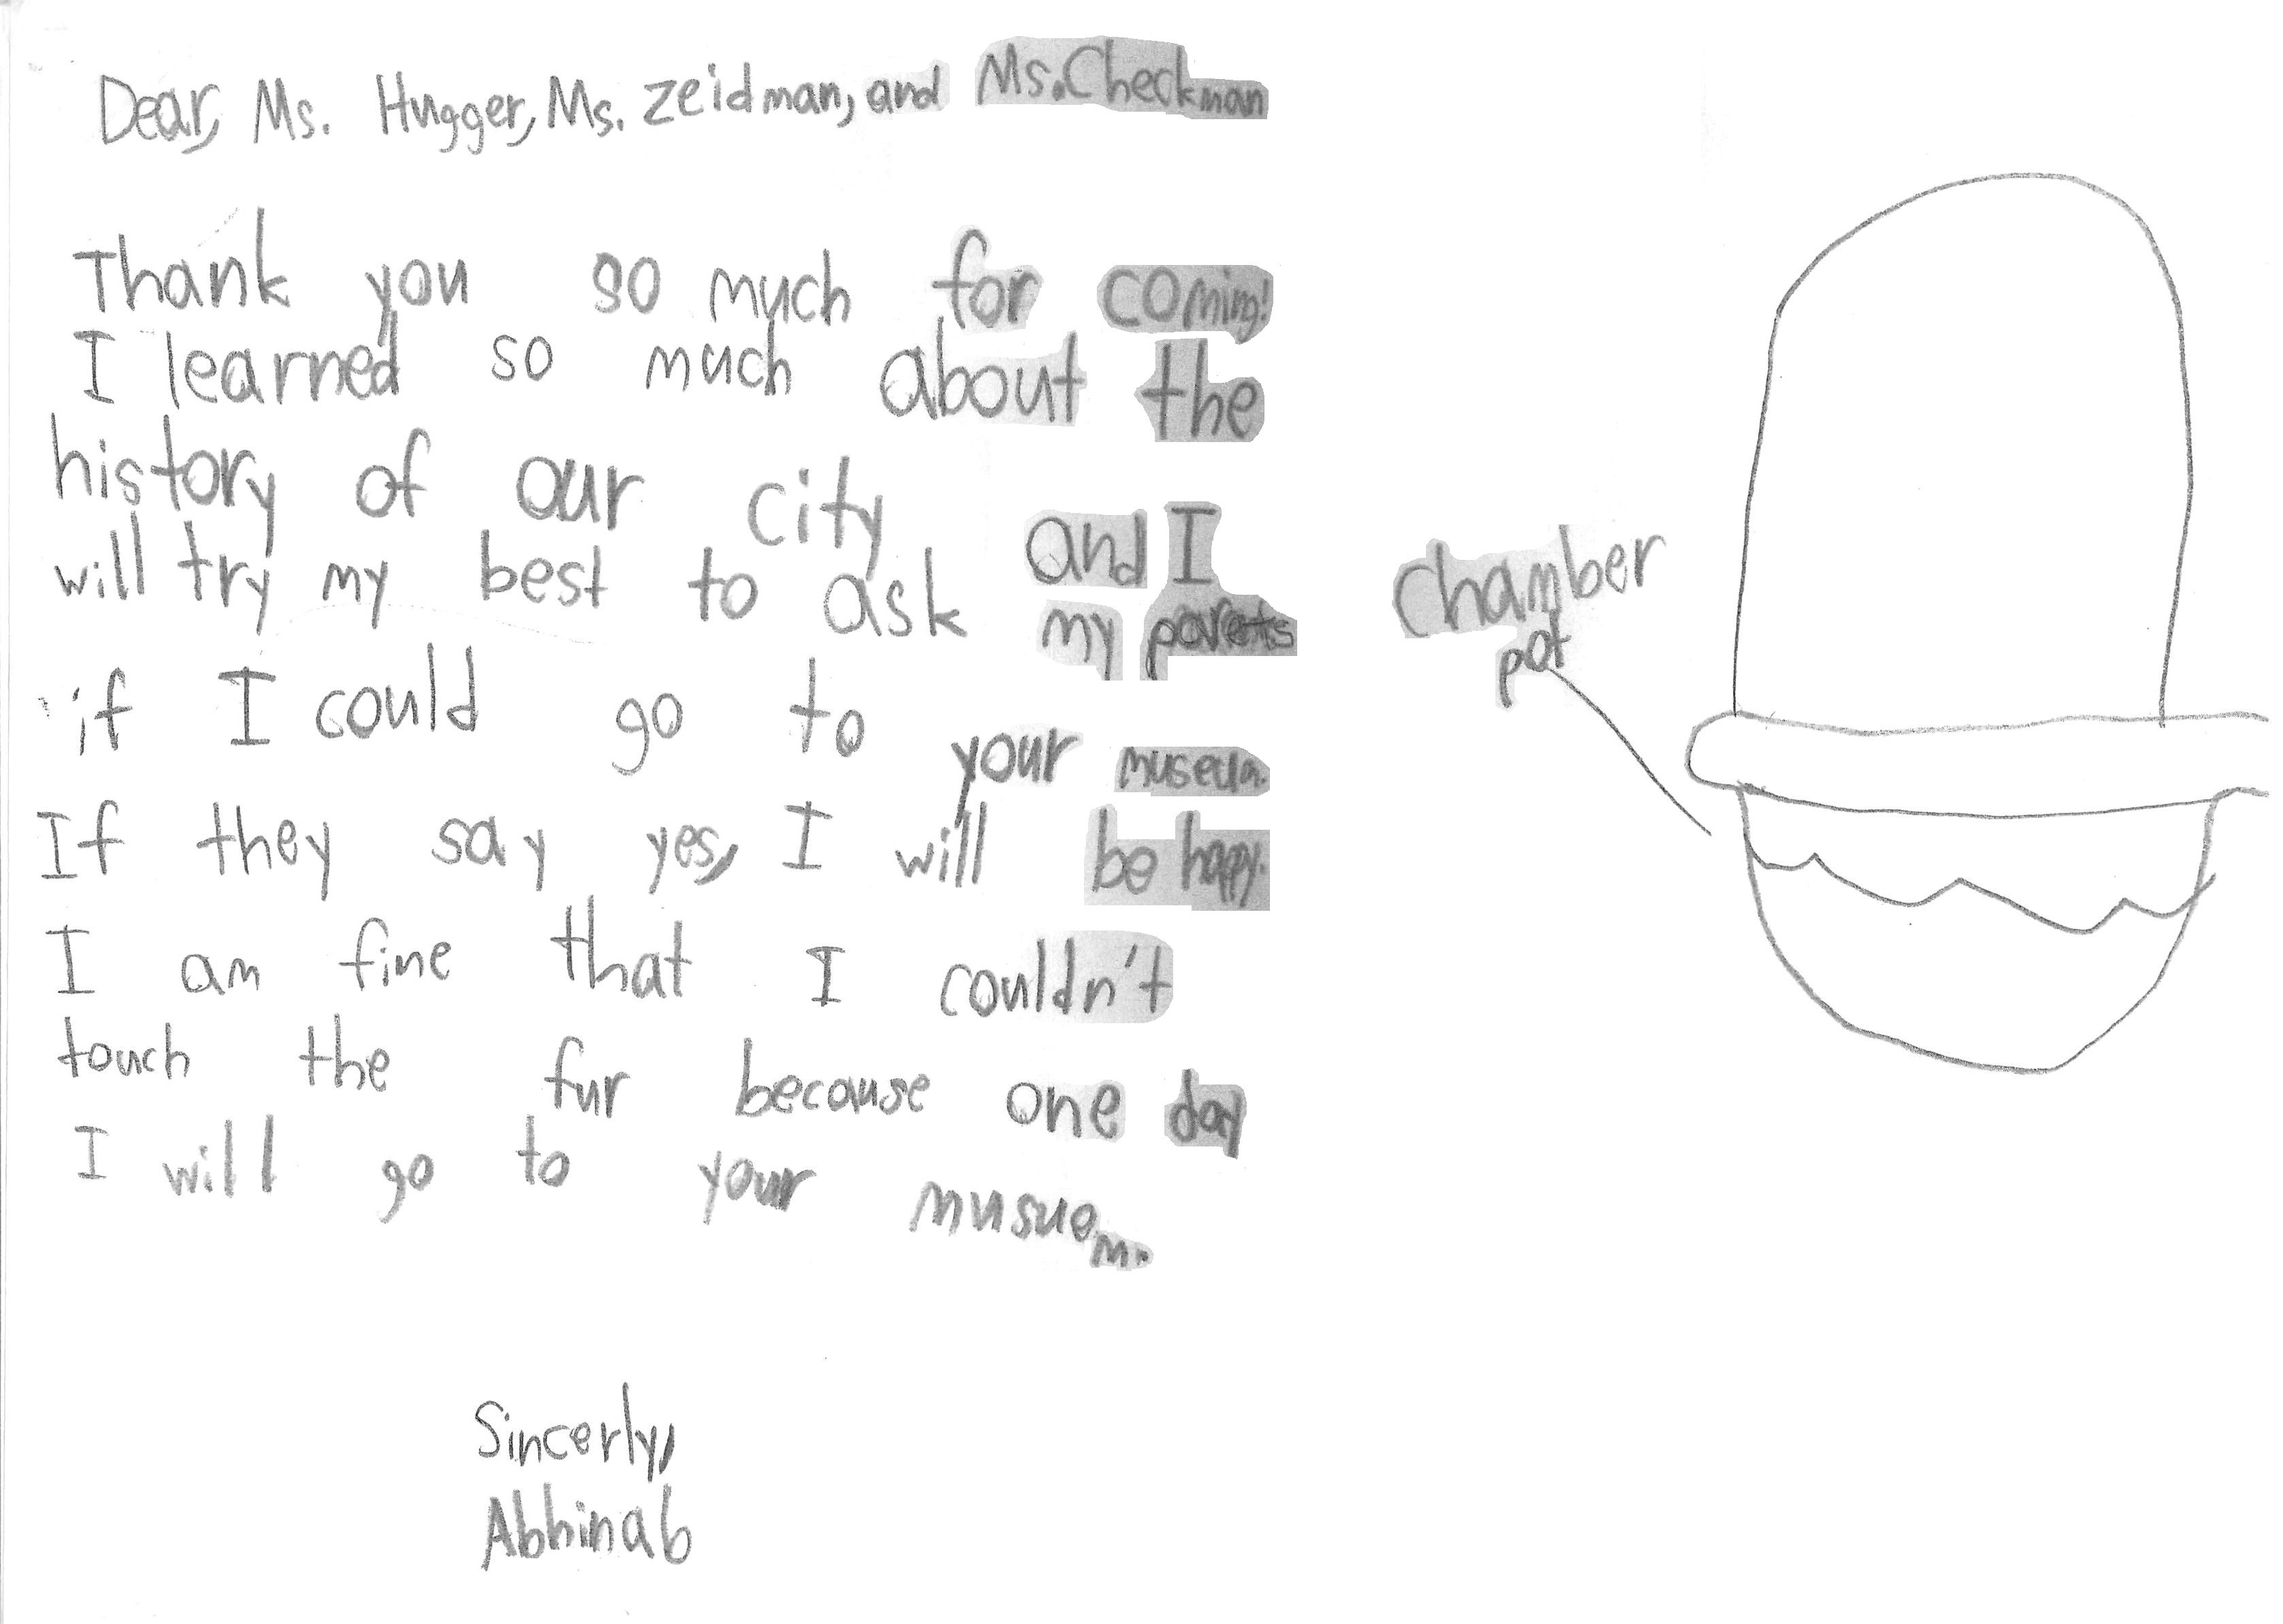 Dear, Ms. Hugger, Ms. Zeidman, and Ms. Checkman
Thank you so much for coming!
I learned so much about the
history of our city and I
will try my best to ask my parents
if I could go to your museum.
If they say yes, I will be happy.
I am fine that I couldn't
touch the fur because one day
I will go to your musuem.
Sincerly,
Abhinab
chamber
pot